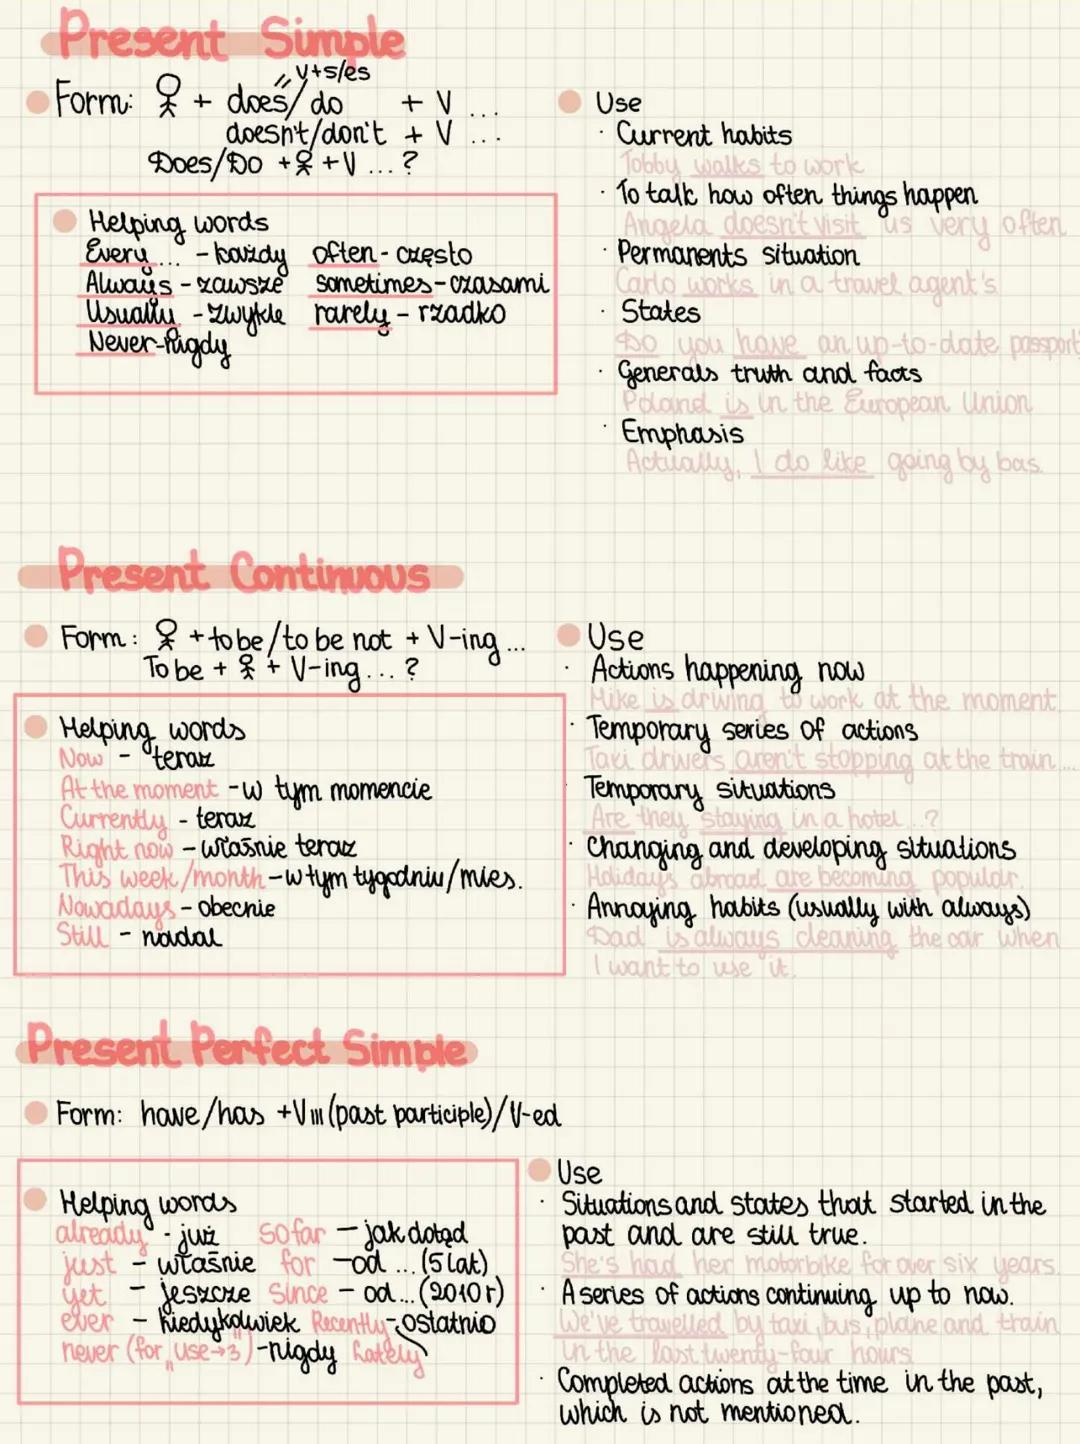 Present Simple
V+s/es
Form: + does/do + V ...
doesn't/don't + V ...
Does/Do + + V ... ?
Helping words
Every ... - każdy often - często
Always - zawsze sometimes - czasami
Usually - zwykle rarely - rzadko
Never - nigdy
Use
· Current habits
Tobby walks to work
· To talk how often things happen
Angela doesn't visit us very often
· Permanents situation
Carlo works in a travel agent's
· States
Do you have an up-to-date passport
· Generals truth and facts
Poland is in the European Union
· Emphasis
Actually, I do like going by bas.
Present Continuous
Form: + to be/to be not + V-ing ...
To be + + V-ing ... ?
Helping words
Now - teraz
At the moment - w tym momencie
Currently - teraz
Right now - właśnie teraz
This week/month - w tym tygodniu/mies.
Nowadays - obecnie
Still - nadal
Use
· Actions happening now
Mike is driving to work at the moment
· Temporary series of actions
Taxi drivers aren't stopping at the train ...
· Temporary situations
Are they staying in a hotel ...?
· Changing and developing situations
Holidays abroad are becoming popular.
· Annoying habits (usually with always)
Dad is always cleaning the car when
I want to use it.
Present Perfect Simple
Form: have/has + VIII (past participle)/V-ed
Helping words
already - już so far - jak dotąd
just - właśnie for - od ... (5 lat)
yet - jeszcze Since - od ... (2010 r)
ever - kiedykolwiek Recently - ostatnio
never (for „use→3") - nigdy Lately
Use
· Situations and states that started in the
past and are still true.
She's had her motorbike for over six years.
· A series of actions continuing up to now.
We've travelled by taxi, bus, plane and train
in the last twenty-four hours
· Completed actions at the time in the past,
which is not mentioned.